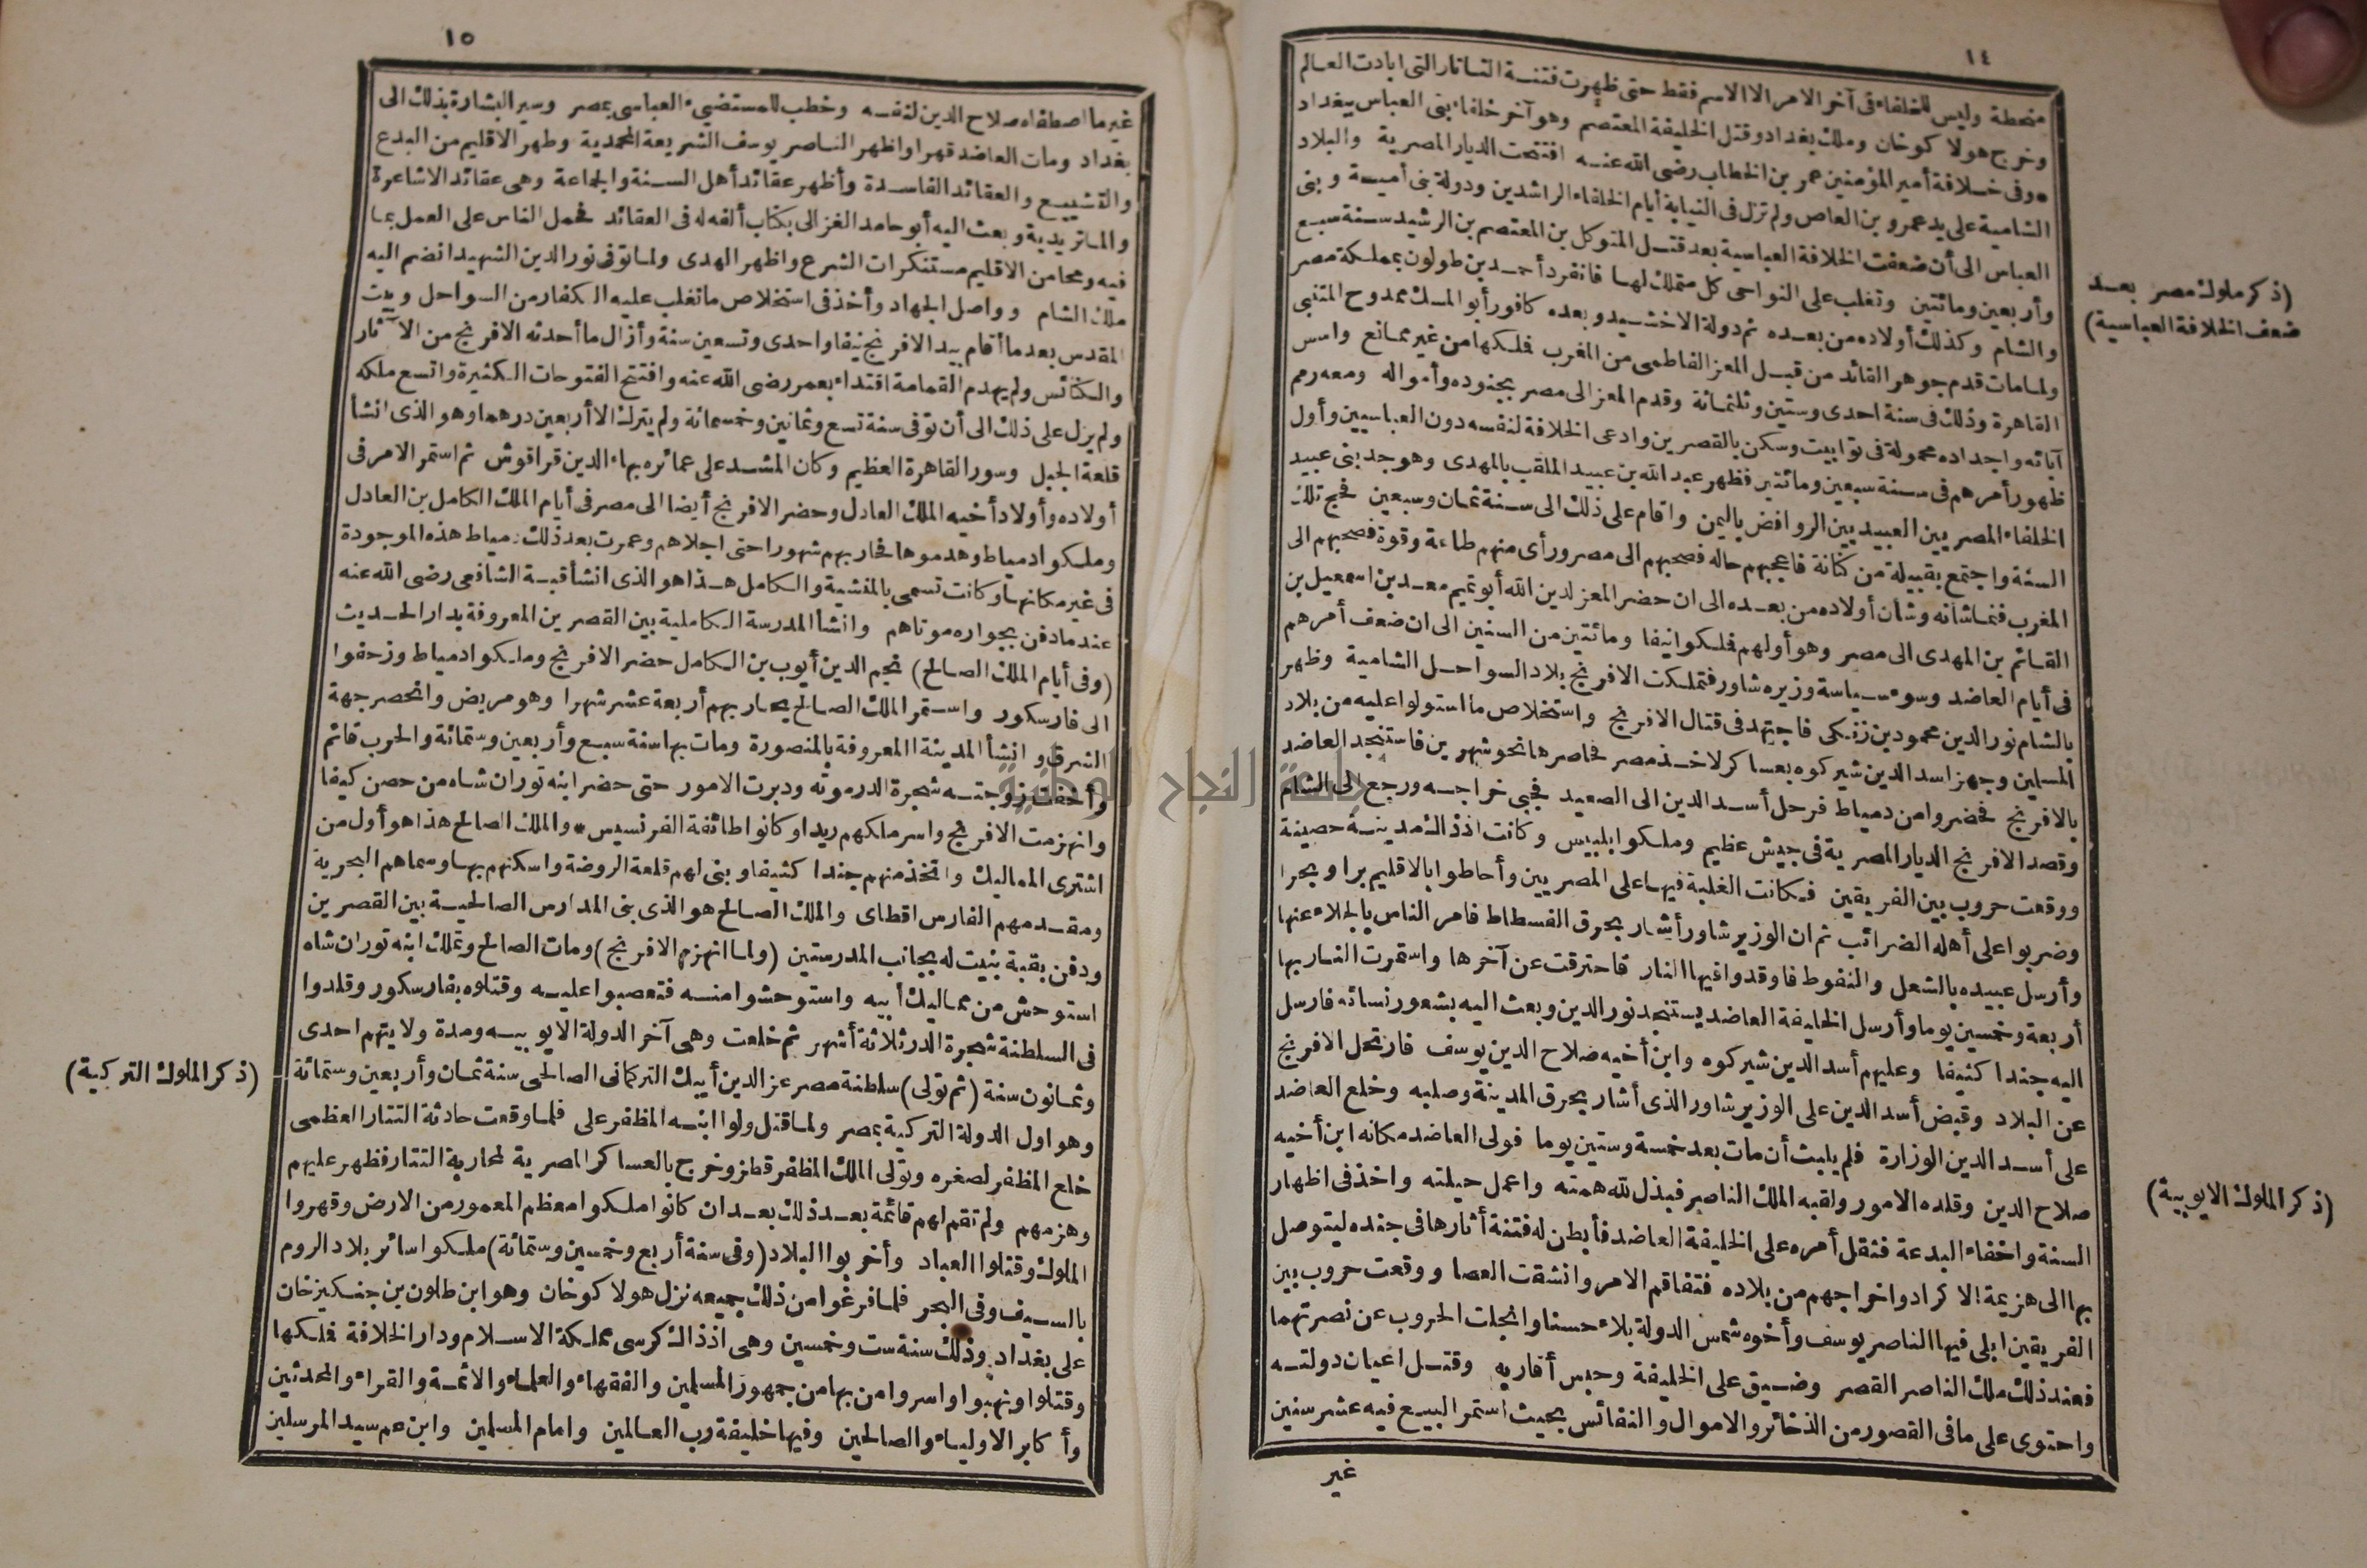 ١٤
منحطة وليس للخلفاء فى آخر الامر الا الاسم فقط حتى ظهرت فتنة التاتار التى ابادت العالم
وخرج هولا كوخان وملك بغداد وقتل الخليفة المعتصم وهو آخر خلفاء بنى العباس ببغداد
* وفى خلافة أمير المؤمنين عمر بن الخطاب رضى الله عنه افتتحت الديار المصرية والبلاد
الشامية على يد عمرو بن العاص ولم تزل فى النيابة أيام الخلفاء الراشدين ودولة بنى أمية وبنى
العباس الى أن ضعفت الخلافة العباسية بعد قتل المتوكل بن المعتصم بن الرشيد سنة سبع
وأربعين ومائتين وتغلب على النواحى كل متملك لها فانفرد أحمد بن طولون بمملكة مصر
والشام وكذلك أولاده من بعده ثم دولة الاخشيد وبعده كافور أبو المسك ممدوح المتنبى
ولما مات قدم جوهر القائد من قبل المعز الفاطمى من المغرب فملكها من غير ممانع واسس
القاهرة وذلك فى سنة احدى وستين وثلثمائة وقدم المعز الى مصر بجنوده وأمواله ومعه رمم
آبائه واجداده محمولة فى توابيت وسكن بالقصرين وادعى الخلافة لنفسه دون العباسيين وأول
ظهور أمرهم فى سنة سبعين ومائتين فظهر عبد الله بن عبيد الملقب بالمهدى وهو جد بنى عبيد
الخلفاء المصريين العبيديين الروافض باليمن واقام على ذلك الى سنة ثمان وسبعين فحج تلك
السنة واجتمع بقبيلة من كنانة فاعجبهم حاله فصحبهم الى مصر ورأى منهم طاعة وقوة فصحبهم الى
المغرب فنما شانه وشان أولاده من بعده الى ان حضر المعز لدين الله أبو تميم معد بن اسمعيل بن
القائم بن المهدى الى مصر وهو أولهم فملكوا نيفا ومائتين من السنين الى ان ضعف أمرهم
فى أيام العاضد وسوء سياسة وزيره شاور فتملكت الافرنج بلاد السواحل الشامية وظهر
بالشام نور الدين محمود بن زنكى فاجتهد فى قتال الافرنج واستخلاص ما استولوا عليه من بلاد
المسلمين وجهز اسد الدين شيركوه بعساكر لاخذ مصر فحاصرها نحو شهرين فاستنجد العاضد
بالافرنج فحضروا من دمياط فرحل أسد الدين الى الصعيد فجبى خراجه ورجع الى الشام
وقصد الافرنج الديار المصرية فى جيش عظيم وملكوا بلبيس وكانت اذ ذاك مدينة حصينة
ووقعت حروب بين الفريقين فكانت الغلبة فيها على المصريين وأحاطوا بالاقليم برا وبحرا
وضربوا على أهله الضرائب ثم ان الوزير شاور أشار بحرق الفسطاط فامر الناس بالجلاء عنها
وأرسل عبيده بالشعل والنفوط فاوقدوا فيها النار فاحترقت عن آخرها واستمرت النار بها
أربعة وخمسين يوما وأرسل الخليفة العاضد يستنجد نور الدين وبعث اليه بشعور نسائه فارسل
اليه جندا كثيفا وعليهم أسد الدين شيركوه وابن أخيه صلاح الدين يوسف فارتحل الافرنج
عن البلاد وقبض أسد الدين على الوزير شاور الذى أشار بحرق المدينة وصلبه وخلع العاضد
على أسد الدين الوزارة فلم يلبث أن مات بعد خمسة وستين يوما فولى العاضد مكانه ابن أخيه
صلاح الدين وقلده الامور ولقبه الملك الناصر فبذل لله همته واعمل حيلته واخذ فى اظهار
السنة واخفاء البدعة فثقل أمره على الخليفة العاضد فأبطن له فتنة أثارها فى جنده ليتوصل
بها الى هزيمة الاكراد واخراجهم من بلاده فتفاقم الامر وانشقت العصا ووقعت حروب بين
الفريقين ابلى فيها الناصر يوسف وأخوه شمس الدولة بلاء حسنا وانجلت الحروب عن نصرتهما
فعند ذلك ملك الناصر القصر وضيق على الخليفة وحبس أقاربه وقتل اعيان دولته
واحتوى على ما فى القصور من الذخائر والاموال والنفائس بحيث استمر البيع فيه عشر سنين
غير
(ذكر ملوك مصر بعد
ضعف الخلافة العباسية)
(ذكر الملوك الايوبية)
١٥
غير ما اصطفاه صلاح الدين لنفسه وخطب للمستضىء العباسى بمصر وسير البشارة بذلك الى
بغداد ومات العاضد قهرا واظهر الناصر يوسف الشريعة المحمدية وطهر الاقليم من البدع
والتشييع والعقائد الفاسدة وأظهر عقائد أهل السنة والجماعة وهى عقائد الاشاعرة
والماتريدية وبعث اليه أبو حامد الغزالى بكتاب ألفه له فى العقائد فحمل الناس على العمل بما
فيه ومحا من الاقليم مستنكرات الشرع واظهر الهدى ولما توفى نور الدين الشهيد انضم اليه
ملك الشام وواصل الجهاد وأخذ فى استخلاص ما تغلب عليه الكفار من السواحل وبيت
المقدس بعد ما أقام بيد الافرنج نيفا واحدى وتسعين سنة وأزال ما أحدثه الافرنج من الآثار
والكنائس ولم يهدم القمامة اقتداء بعمر رضى الله عنه وافتتح الفتوحات الكثيرة واتسع ملكه
ولم يزل على ذلك الى أن توفى سنة تسع وثمانين وخمسمائة ولم يترك الا أربعين درهما وهو الذى انشأ
قلعة الجبل وسور القاهرة العظيم وكان المشد على عمائره بهاء الدين قراقوش ثم استمر الامر فى
أولاده وأولاد أخيه الملك العادل وحضر الافرنج أيضا الى مصر فى أيام الملك الكامل بن العادل
وملكوا دمياط وهدموها فحاربهم شهورا حتى اجلاهم وعمرت بعد ذلك دمياط هذه الموجودة
فى غير مكانها وكانت تسمى بالمنشية والكامل هذا هو الذى انشأ قبة الشافعى رضى الله عنه
عند ما دفن بجواره موتاهم وانشأ المدرسة الكاملية بين القصرين المعروفة بدار الحديث
(وفى أيام الملك الصالح) نجم الدين أيوب بن الكامل حضر الافرنج وملكوا دمياط وزحفوا
الى فارسكور واستمر الملك الصالح يحاربهم أربعة عشر شهرا وهو مريض وانحصر جهة
الشرق وانشأ المدينة المعروفة بالمنصورة ومات بها سنة سبع وأربعين وستمائة والحرب قائم
وأخفت زوجته شجرة الدر موته ودبرت الامور حتى حضر ابنه توران شاه من حصن كيفا
وانهزمت الافرنج واسر ملكهم ريدا وكانوا طائفة الفرنسيس * والملك الصالح هذا هو أول من
اشترى المماليك واتخذ منهم جندا كثيفا وبنى لهم قلعة الروضة واسكنهم بها وسماهم البحرية
ومقدمهم الفارس اقطاى والملك الصالح هو الذى بنى المدارس الصالحية بين القصرين
ودفن بقبة بنيت له بجانب المدرستين (ولما انهزم الافرنج) ومات الصالح وتملك ابنه توران شاه
استوحش من مماليك أبيه واستوحشوا منه فتعصبوا عليه وقتلوه بفارسكور وقلدوا
فى السلطنة شجرة الدر ثلاثة أشهر ثم خلعت وهى آخر الدولة الايوبيه ومدة ولايتهم احدى
وثمانون سنة (ثم تولى) سلطنة مصر عز الدين أيبك التركمانى الصالحى سنة ثمان وأربعين وستمائة
وهو اول الدولة التركية بمصر ولما قتل ولوا ابنه المظفر على فلما وقعت حادثة التتار العظمى
خلع المظفر لصغره وتولى الملك المظفر قطز وخرج بالعساكر المصرية لمحاربة التتار فظهر عليهم
وهزمهم ولم تقم لهم قائمة بعد ذلك بعد ان كانوا ملكوا معظم المعمور من الارض وقهروا
الملوك وقتلوا العباد وأخربوا البلاد (وفى سنة أربع وخمسين وستمائة) ملكوا سائر بلاد الروم
بالسيف وفى البحر فلما فرغوا من ذلك جميعه نزل هولا كوخان وهو ابن طلون بن جنكيزخان
على بغداد وذلك سنة ست وخمسين وهى اذ ذاك كرسى مملكة الاسلام ودار الخلافة فملكها
وقتلوا ونهبوا واسروا من بها من جمهور المسلمين والفقهاء والعلماء والائمة والقراء والمحدثين
وأكابر الاولياء والصالحين وفيها خليفة رب العالمين وامام المسلمين وابن عم سيد المرسلين
(ذكر الملوك التركية)
جامعة النجاح الوطنية